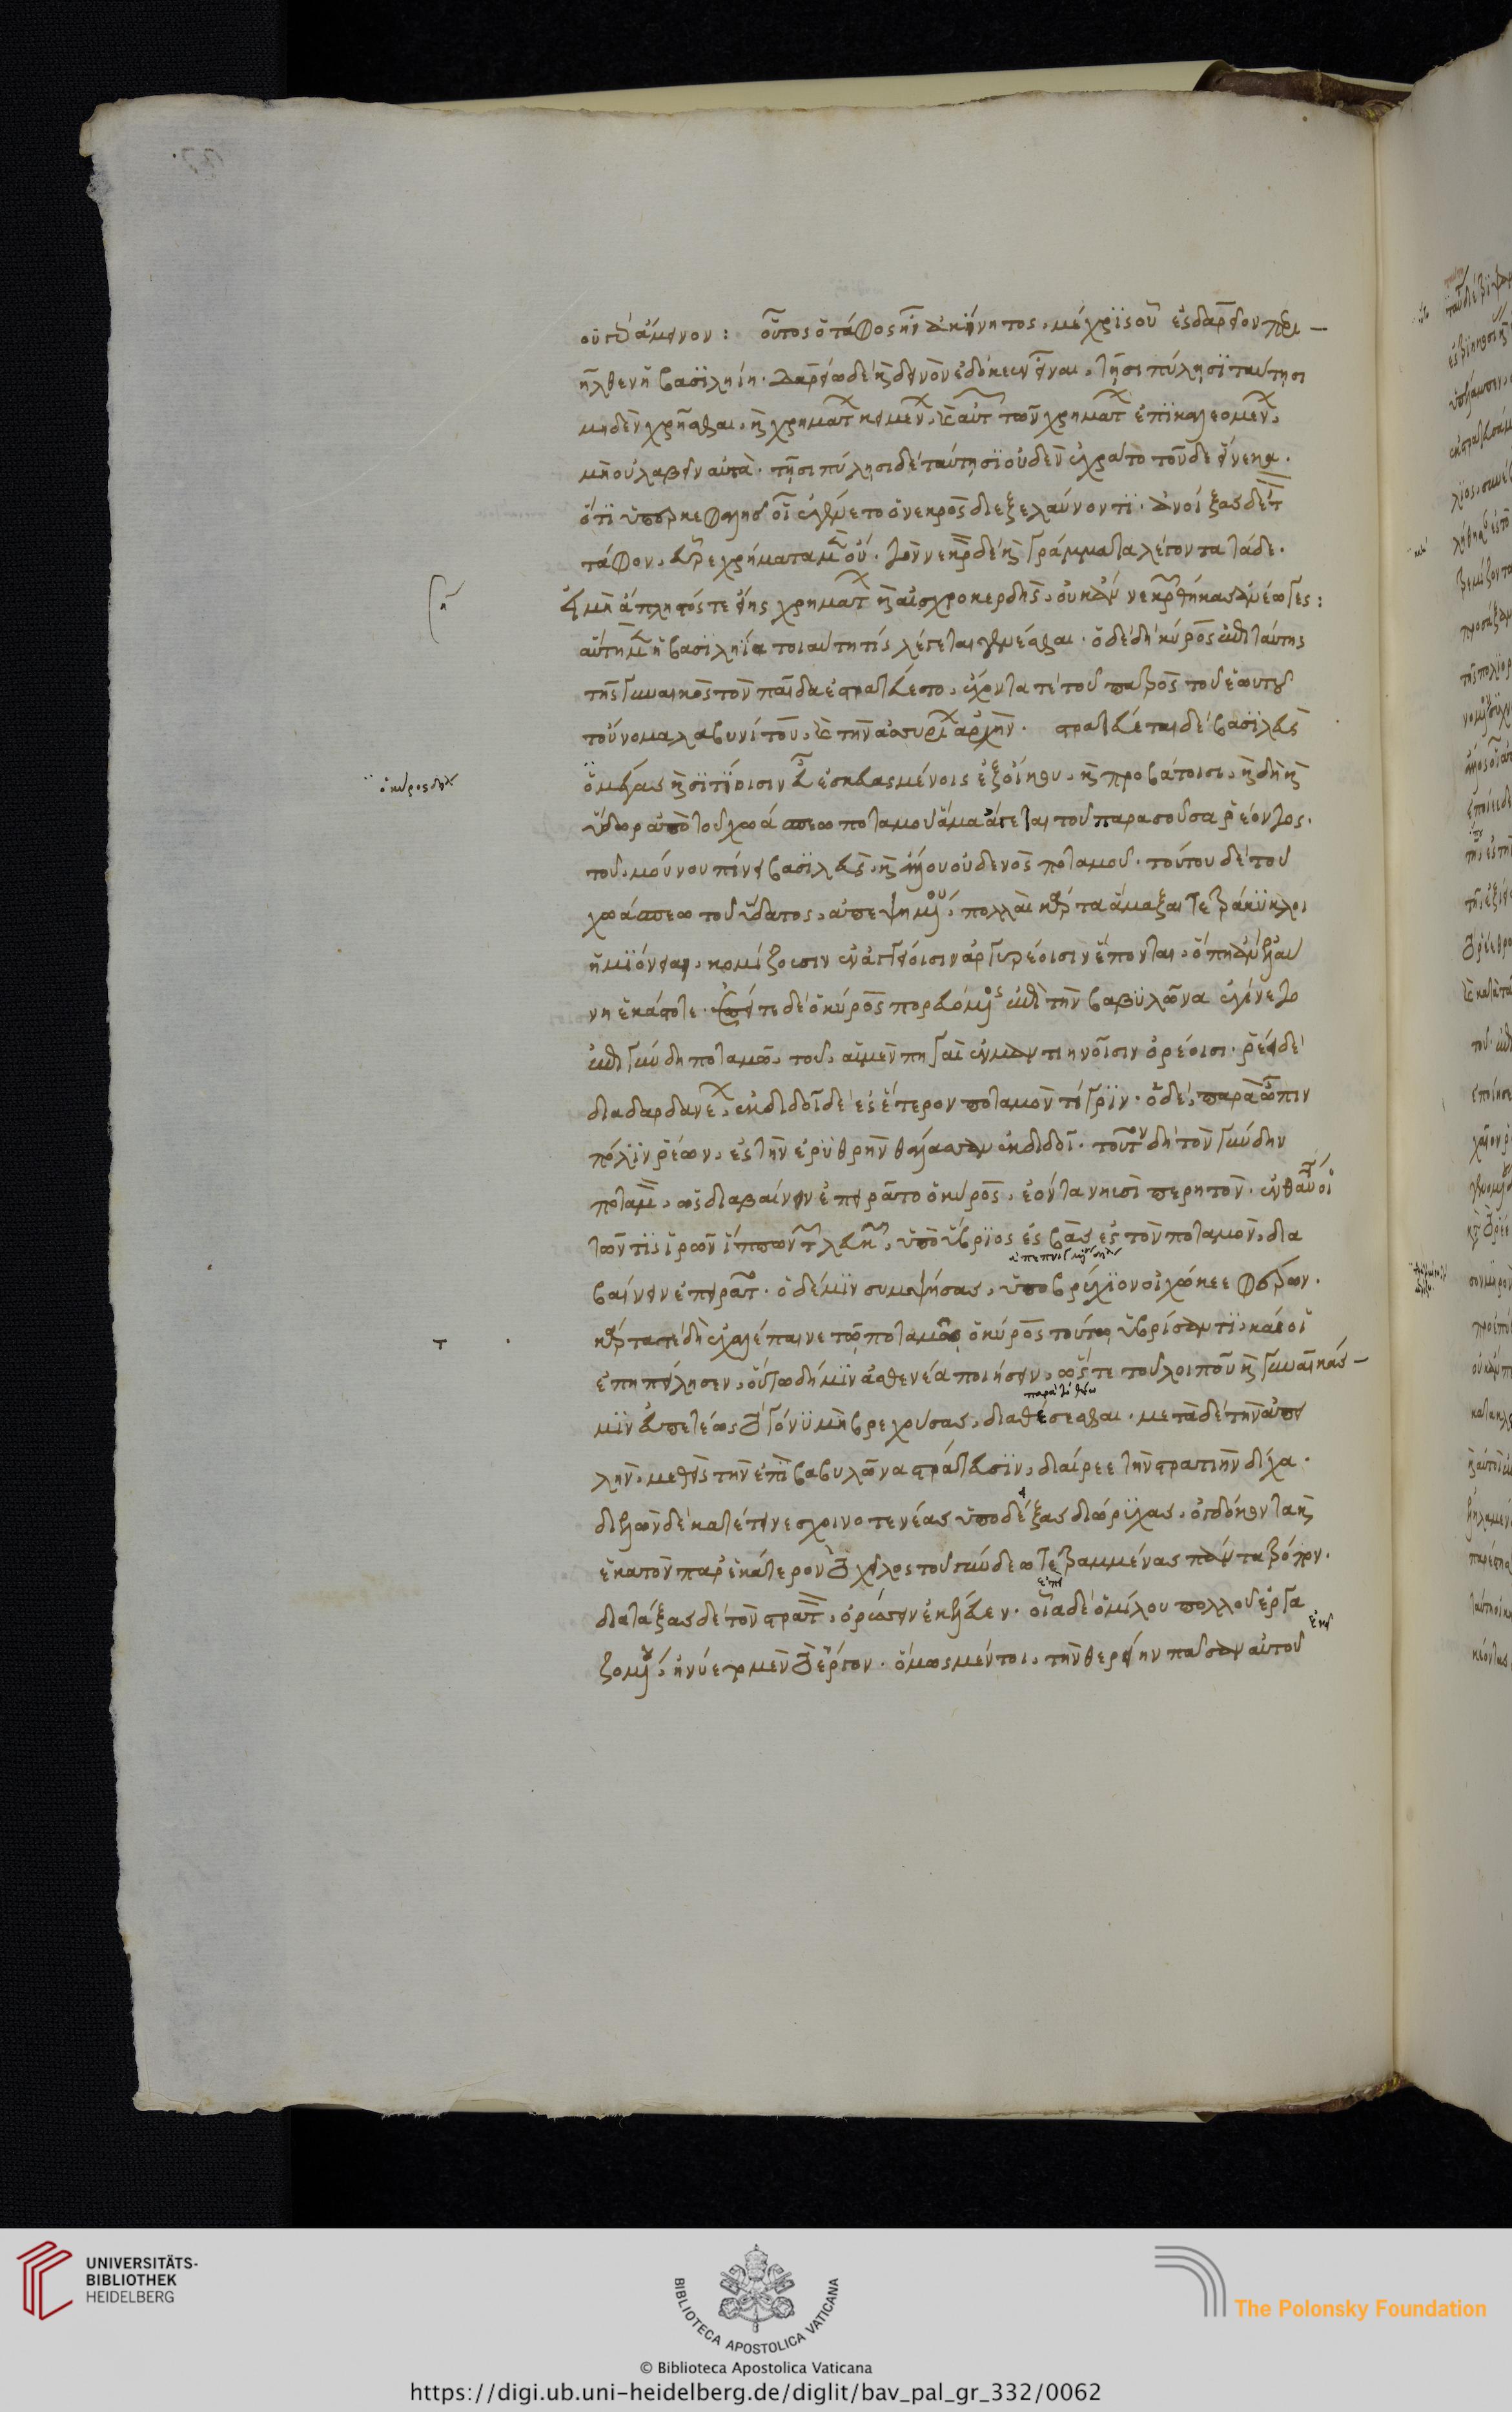 οὐ γὰρ ἄμεινον: οὗτος ὁ τάφος ἦν ἀκίνητος, μέχρις οὗ ἐς δαρεῖον περι-
ῆλθεν ἡ βασιληίη. δαρείῳ δὲ καὶ δεινὸν ἐδόκεεν εἶναι, τῇσι πύλῃσι ταύτῃσι
μηδὲν χρῆσθαι, καὶ χρημάτων κειμένων, καὶ αὐτῶν τῶν χρημάτων ἐπικαλεομένων,
μὴ οὐ λαβεῖν αὐτὰ. τῇσι πύλῃσι δὲ ταύτῃσι οὐδὲν ἐχρᾶτο τοῦδε εἵνεκα.
ὅτι ὑπὲρ κεφαλῆς οἱ ἐγίνετο ὁ νεκρὸς διεξελαύνοντι. ἀνοίξας δὲ τὸν
τάφον, εὗρε χρήματα μὲν οὔ. τὸν νεκρὸν δὲ καὶ γράμματα λέγοντα τάδε.
εἰ μὴ ἄπληστός τε εἶς χρημάτων καὶ αἰσχροκερδὴς, οὐκ ἂν νεκρῶν θήκας ἀνέωγες:
αὕτη μὲν ἡ βασιληία τοιαύτη τίς λέγεται γενέσθαι. ὁ δὲ δὴ κῦρος ἐπὶ ταύτης
τῆς γυναικὸς τὸν παῖδα ἐστρατεύετο, ἔχοντα τὲ τοῦ πατρὸς τοῦ ἑωυτοῦ
τοὔνομα λαβυνίτου, καὶ τὴν ἀσσυρίων ἀρχὴν. στρατεύεται δὲ βασιλεὺς
ὁ μέγας καὶ σιτίοισιν εὖ ἐσκευασμένοις ἐξ οἴκου, καὶ προβάτοισι, καὶ δὴ καὶ
ὁ κῦρος δηλ
ὕδωρ ἀπὸ τοῦ χοάσπεω ποταμοῦ ἅμα ἄγεται τοῦ παρὰ σοῦσα ῥέοντος.
τοῦ, μούνου πίνει βασιλεὺς, καὶ ἄλλου οὐδενὸς ποταμοῦ. τούτου δὲ τοῦ
χοάσπεω τοῦ ὕδατος, ἀπεψημένου, πολλαὶ κάρτα ἅμαξαι τετράκυκλοι
ἡμιόνειαι, κομίζουσιν ἐν ἀγγείοισιν ἀργυρέοισιν ἕπονται, ὅπη ἂν ἐλαύ
νη ἑκάστοτε. ἐπεί τε δὲ ὁ κῦρος πορευόμενος ἐπὶ τὴν βαβυλῶνα ἐγίνετο
ἐπὶ γύνδη ποταμῷ, τοῦ, αἱ μὲν πηγαὶ ἐν μαντιηνοῖσιν ὄρεσι. ῥέει δὲ
διὰ δαρδανέων, ἐκδιδοῖ δὲ ἐς ἕτερον ποταμὸν τίγριν. ὁ δὲ, παρὰ ὦπιν
πόλιν ῥέων, ἐς τὴν ἐρυθρὴν θάλασσαν ἐκδιδοῖ. τοῦτον δὴ τὸν γύνδην
ποταμὸν, ὡς διαβαίνειν ἐπειρᾶτο ὁ κῦρος, ἐόντα νηυσὶ περητὸν. ἐνθαῦτά οἱ
τῶν τὶς ἱρῶν ἵππων τῶν λευκῶν, ὑπὸ ὕβριος ἐς βὰς ἐς τὸν ποταμὸν, δια
βαίνειν ἐπειρᾶτο. ὁ δέ μιν συμψήσας, ὑποβρύχιον οἰχώκεε φέρων.
κάρτα τε δὴ ἐχαλέπαινε τῷ ποταμῷ ὁ κῦρος τούτῳ ὑβρίσαντι, καί οἱ
ἐπηπείλησεν, οὕτω δή μιν ἀσθενέα ποιήσειν, ὥστε τοῦ λοιποῦ καὶ γυναῖκάς-
μιν εὐπετέως τὸ γόνυ μὴ βρεχούσας, διαθέσεσθαι. μετὰ δὲ τὴν ἀπει
λὴν, μεθεὶς τὴν ἐπὶ βαβυλῶνα στράτευσιν, διαίρεε τὴν στρατιὴν δίχα.
διελὼν δὲ κατέτεινε σχοινοτενέας ὑποδέξας διώρυχας, ὀγδώκοντα καὶ
ἑκατὸν παρ᾽ ἑκάτερον τὸ χεῖλος τοῦ γύνδεω τετραμμένας πάντα τρόπον.
διατάξας δὲ τὸν στρατὸν, ὀρύσσειν ἐκέλευεν. οἷα δὲ ὁμίλου πολλοῦ ἐργα
ζομένου, ἠνύετο μὲν τὸ ἔργον. ὅμως μέντοι, τὴν θερείην πᾶσαν αὐτοῦ
UNIVERSITÄTS-
BIBLIOTHEK
HEIDELBERG
BIBLIOTECA APOSTOLICA VATICANA
The Polonsky Foundation
© Biblioteca Apostolica Vaticana
https://digi.ub.uni-heidelberg.de/diglit/bav_pal_gr_332/0062